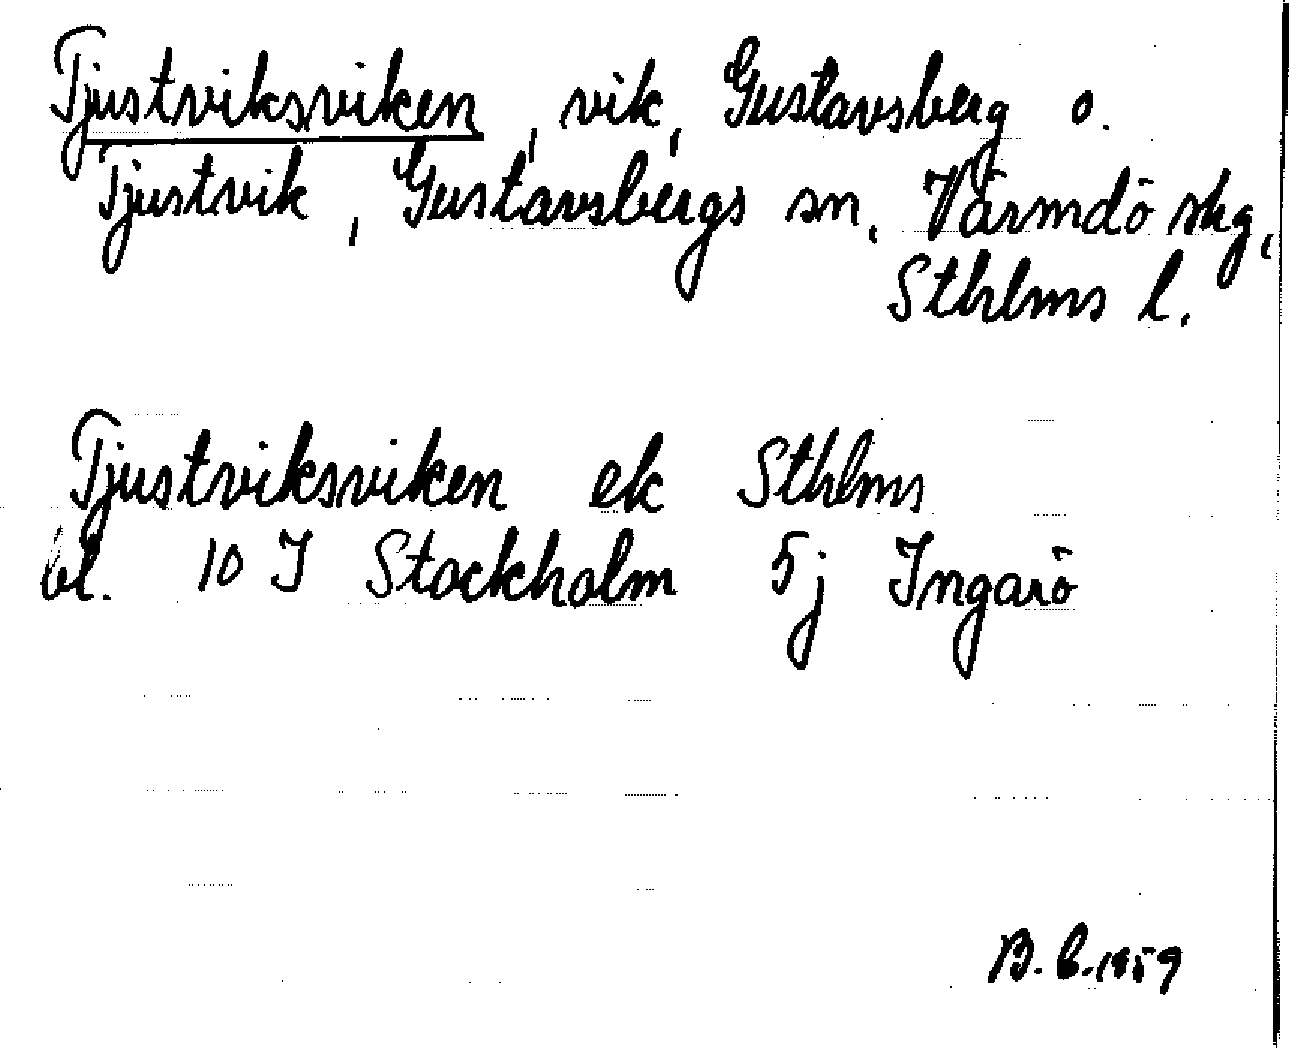 Tjustviksviken, vik, Gustavsberg o.
Tjustvik, Gustavsbergs sn, Värmdö skg,
Sthlms l.
Tjustviksviken ek Sthlms
bl. 10 I Stockholm 5j Ingarö
B. C. 1959